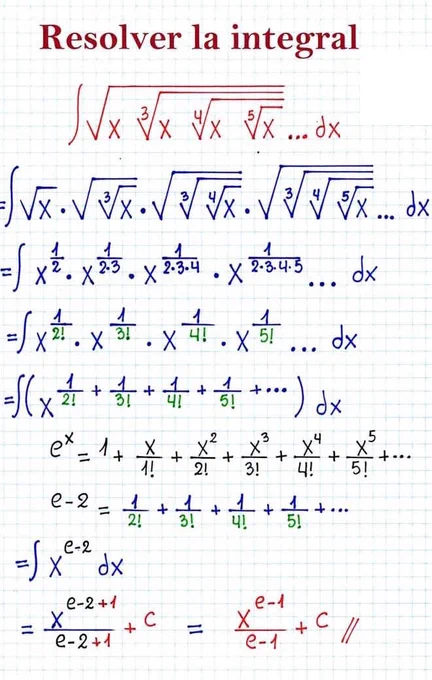 Resolver la integral
∫√(x ∛(x ∜(x ⁵√x))) ... dx
=∫√x · √(∛x) · √(∛(∜x)) · √(∛(∜(⁵√x))) ... dx
=∫ x^(1/2) · x^(1/(2·3)) · x^(1/(2·3·4)) · x^(1/(2·3·4·5)) ... dx
=∫ x^(1/2!) · x^(1/3!) · x^(1/4!) · x^(1/5!) ... dx
=∫(x^(1/2! + 1/3! + 1/4! + 1/5! + ...)) dx
e^x = 1 + x/1! + x²/2! + x³/3! + x⁴/4! + x⁵/5! + ...
e-2 = 1/2! + 1/3! + 1/4! + 1/5! + ...
=∫ x^(e-2) dx
= x^(e-2+1)/(e-2+1) + C = x^(e-1)/(e-1) + C //